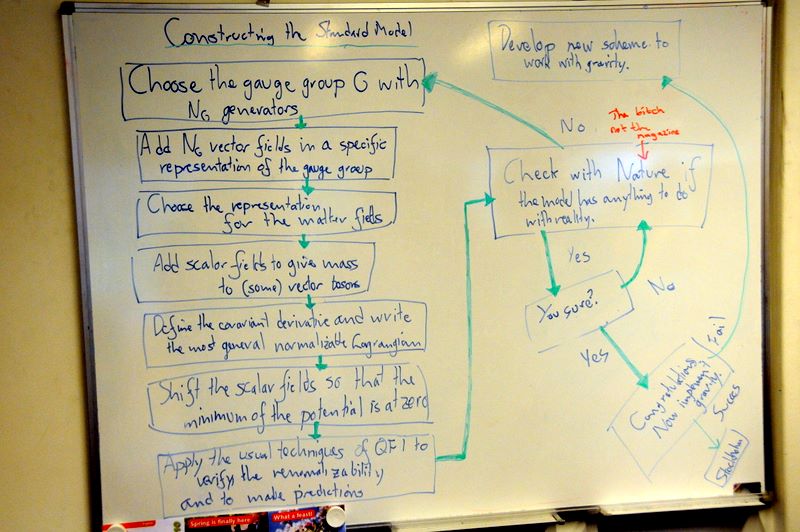 Constructing the Standard Model
Choose the gauge group G with
NG generators
Add NG vector fields in a specific
representation of the gauge group
Choose the representation
for the matter fields
Add scalar fields to give mass
to (some) vector bosons
Define the covariant derivative and write
the most general normalizable Lagrangian
Shift the scalar fields so that the
minimum of the potential is at zero
Apply the usual techniques of QFT to
verify the renormalizability
and to make predictions
Develop new scheme to
work with gravity.
No
The bitch
not the
magazine
Check with Nature if
the model has anything to do
with reality.
Yes
You sure?
No
Yes
Congratulations
Now implement
gravity.
Fail
Succes
Stockholm
Spring is finally here
What a feast!